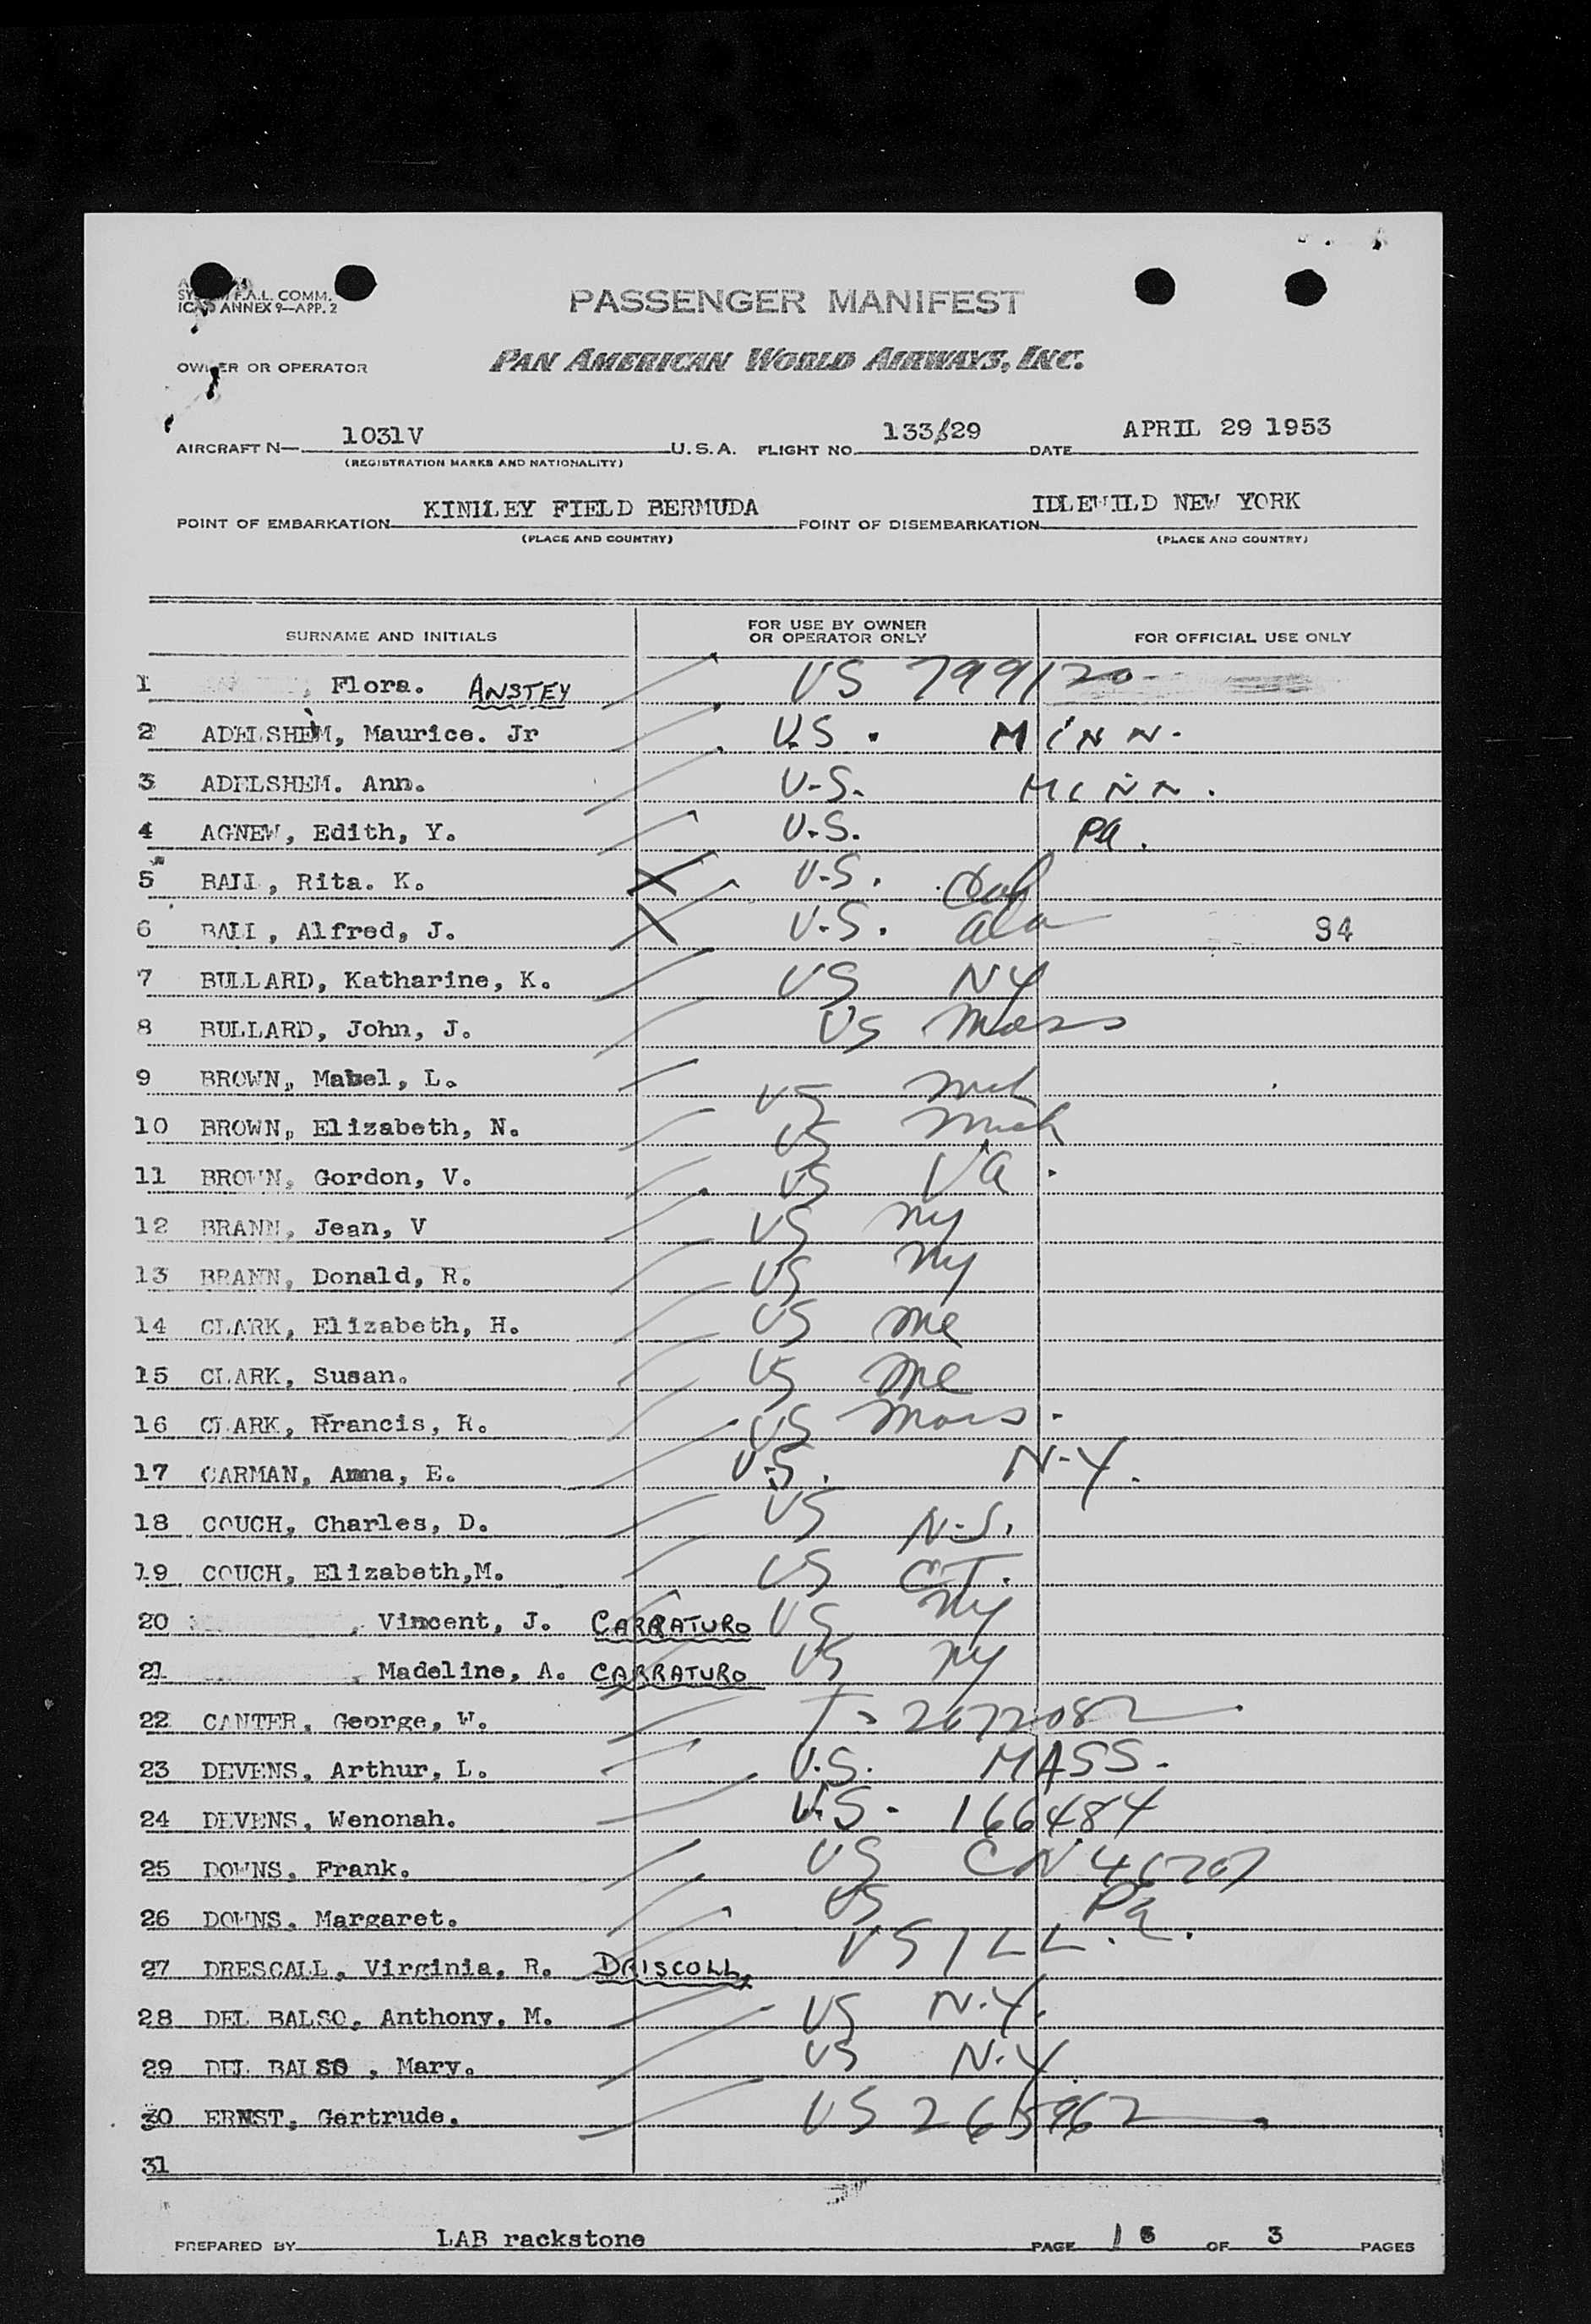 SYSTEM F.A.L. COMM.
ICAO ANNEX 9—APP. 2
PASSENGER MANIFEST
OWNER OR OPERATOR PAN AMERICAN WORLD AIRWAYS, INC.
AIRCRAFT N— 1031V U.S.A. FLIGHT NO. 133/29 DATE APRIL 29 1953
(REGISTRATION MARKS AND NATIONALITY)
POINT OF EMBARKATION KINDLEY FIELD BERMUDA POINT OF DISEMBARKATION IDLEWILD NEW YORK
(PLACE AND COUNTRY) (PLACE AND COUNTRY)
SURNAME AND INITIALS FOR USE BY OWNER OR OPERATOR ONLY FOR OFFICIAL USE ONLY
1 , Flora. ANSTEY US 799120
2 ADELSHEM, Maurice. Jr U.S. MINN.
3 ADELSHEM. Ann. U.S. MINN.
4 AGNEW, Edith, Y. U.S. PA.
5 BALL, Rita. K. X U.S.
6 BALL, Alfred, J. X U.S. ala 94
7 BULLARD, Katharine, K. US NY
8 BULLARD, John, J. US Mass
9 BROWN, Mabel, L. US Mich
10 BROWN, Elizabeth, N. US Mich
11 BROWN, Gordon, V. US VA.
12 BRANN, Jean, V US Ny
13 BRANN, Donald, R. US Ny
14 CLARK, Elizabeth, H. US Me
15 CLARK, Susan. US Me
16 CLARK, Francis, R. US Mass.
17 CARMAN, Anna, E. U.S. N.Y.
18 COUCH, Charles, D. US N.J.
19 COUCH, Elizabeth,M. US CT.
20 , Vincent, J. CARRATURO US Ny
21 , Madeline, A. CARRATURO US Ny
22 CANTER, George, W. T-2672082
23 DEVENS, Arthur, L. U.S. MASS.
24 DEVENS, Wenonah. U.S. 166484
25 DOWNS, Frank. US CN
26 DOWNS. Margaret. US Pa.
27 DRESCALL, Virginia, R. DRISCOLL US ILL.
28 DEL BALSO, Anthony, M. US N.Y.
29 DEL BALSO , Mary. US N.Y.
30 ERNST, Gertrude. US 265962
31
PREPARED BY LAB rackstone PAGE 1 OF 3 PAGES